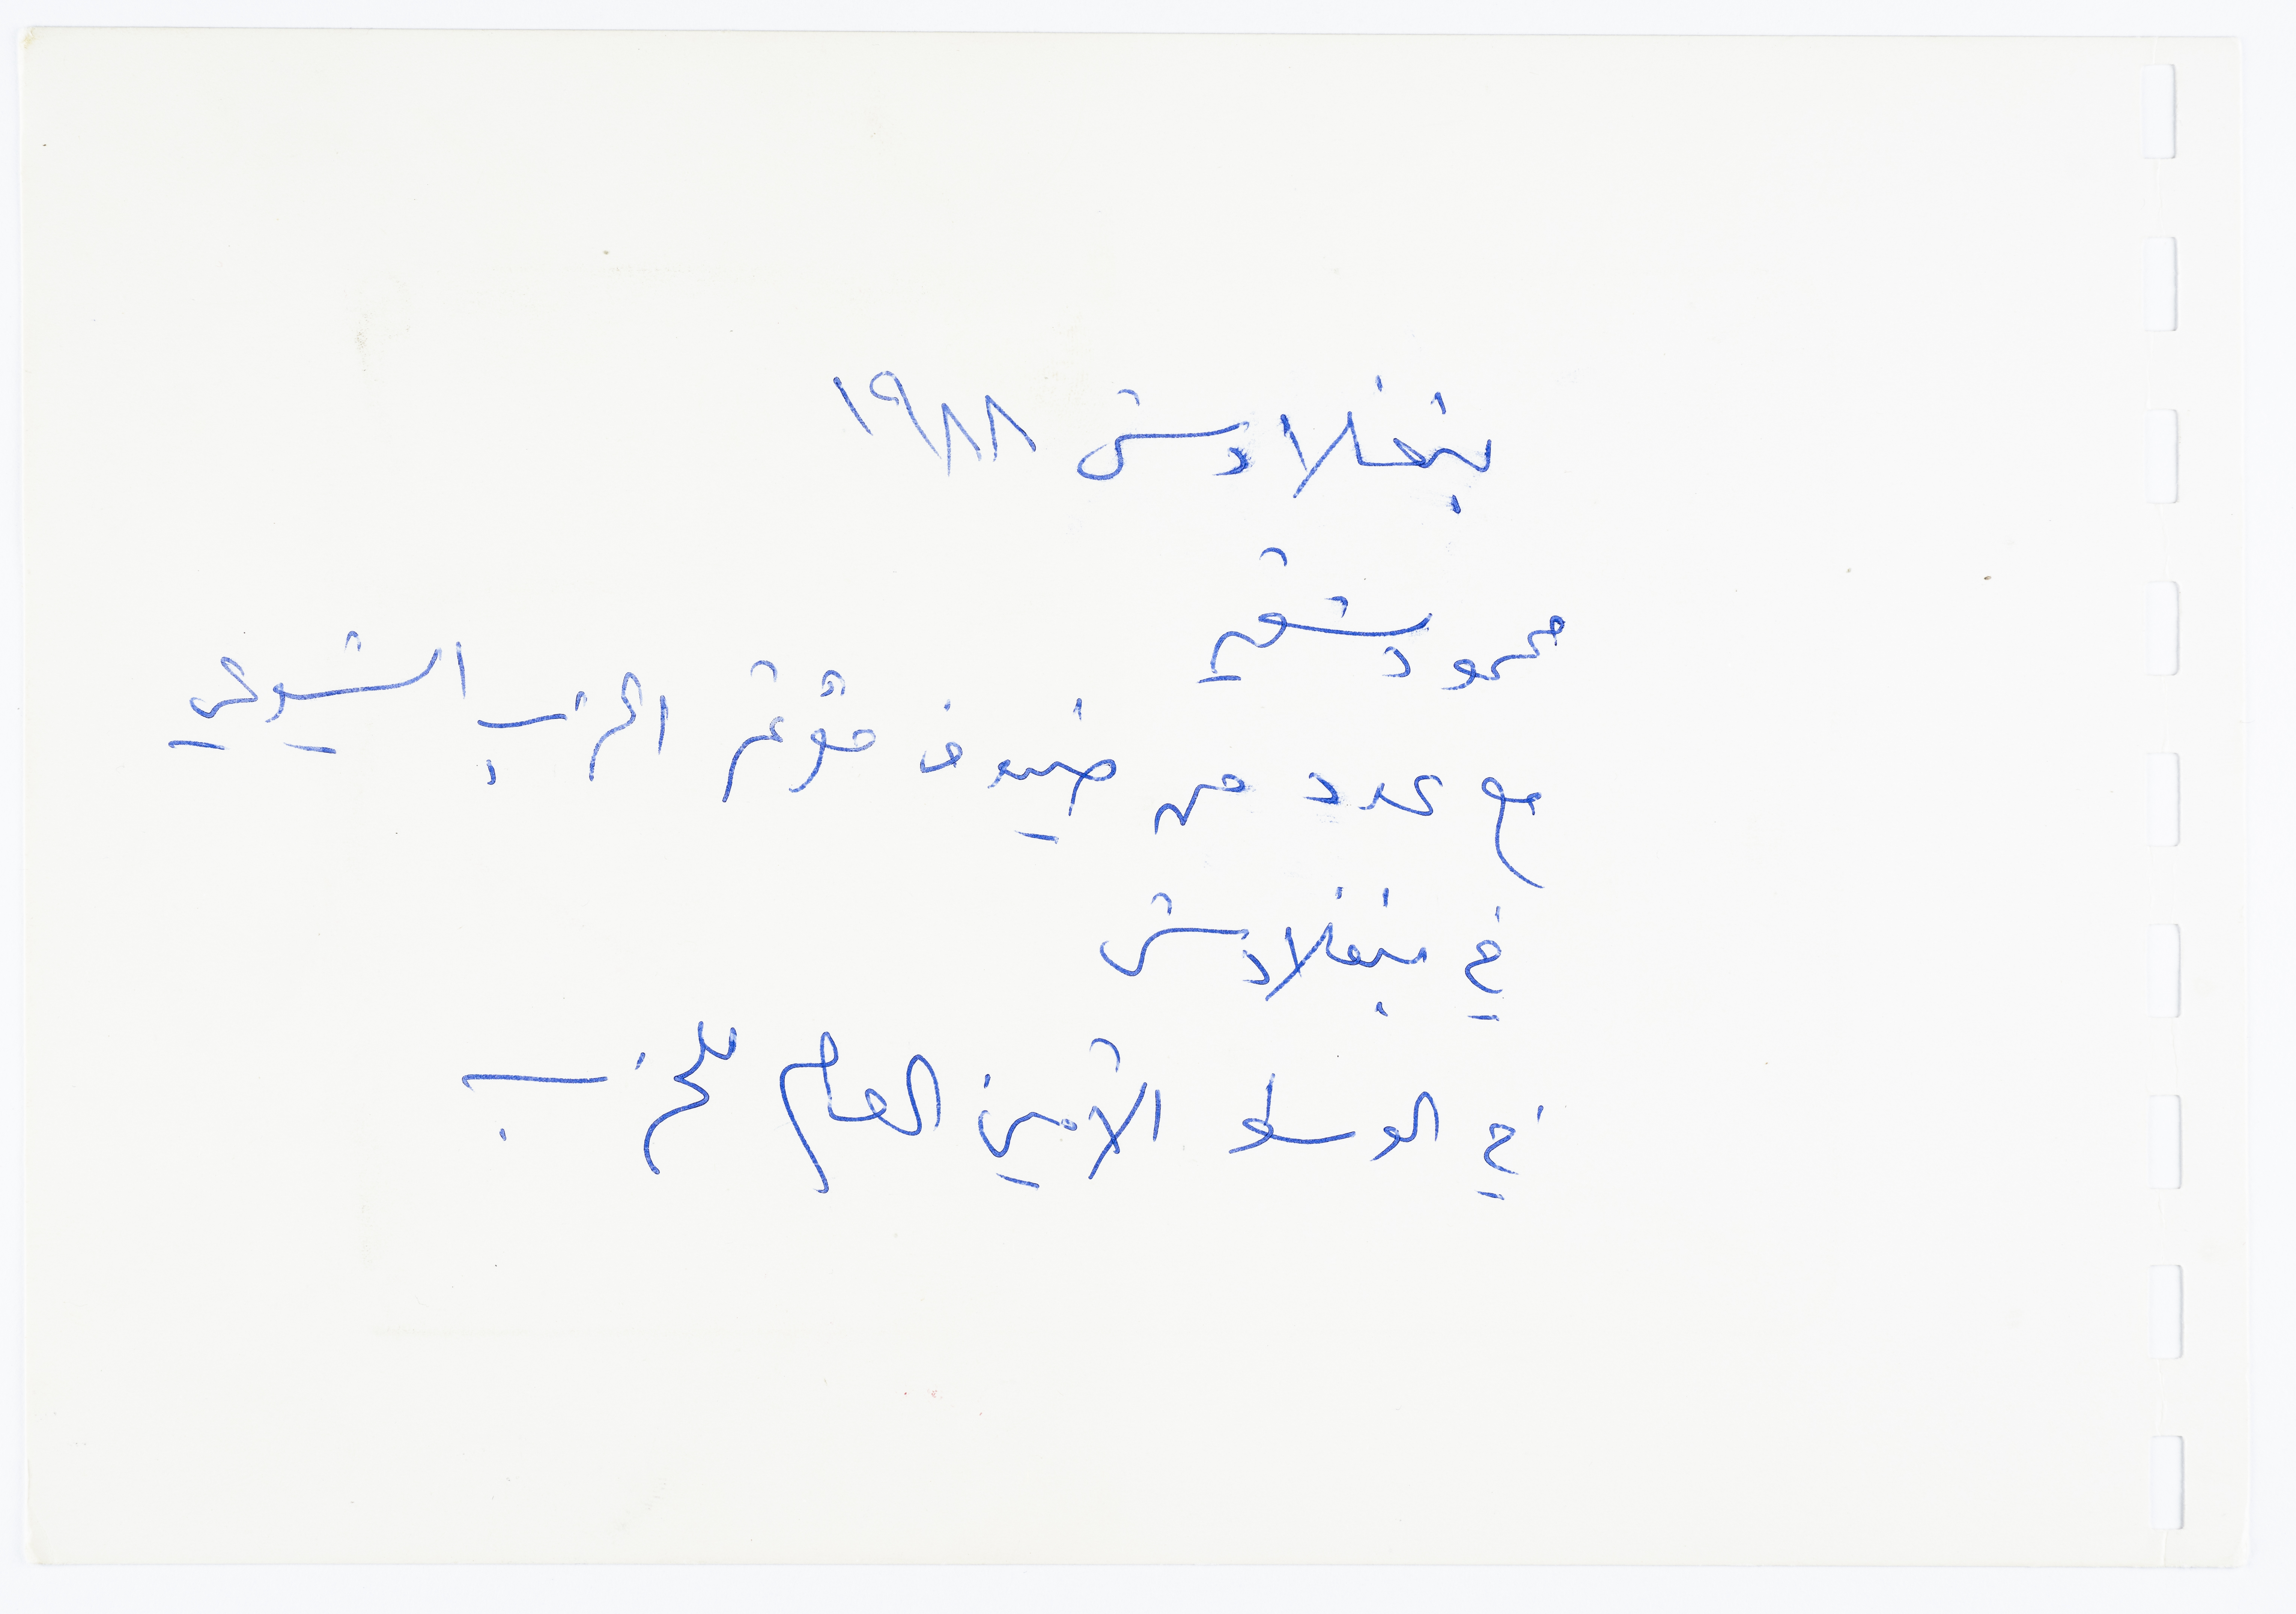 بنغلادش ١٩٨٨
محمود شقير
مع عدد من ضيوف مؤتمر الحزب الشيوعي
في بنغلادش
في الوسط الأمين العام للحزب